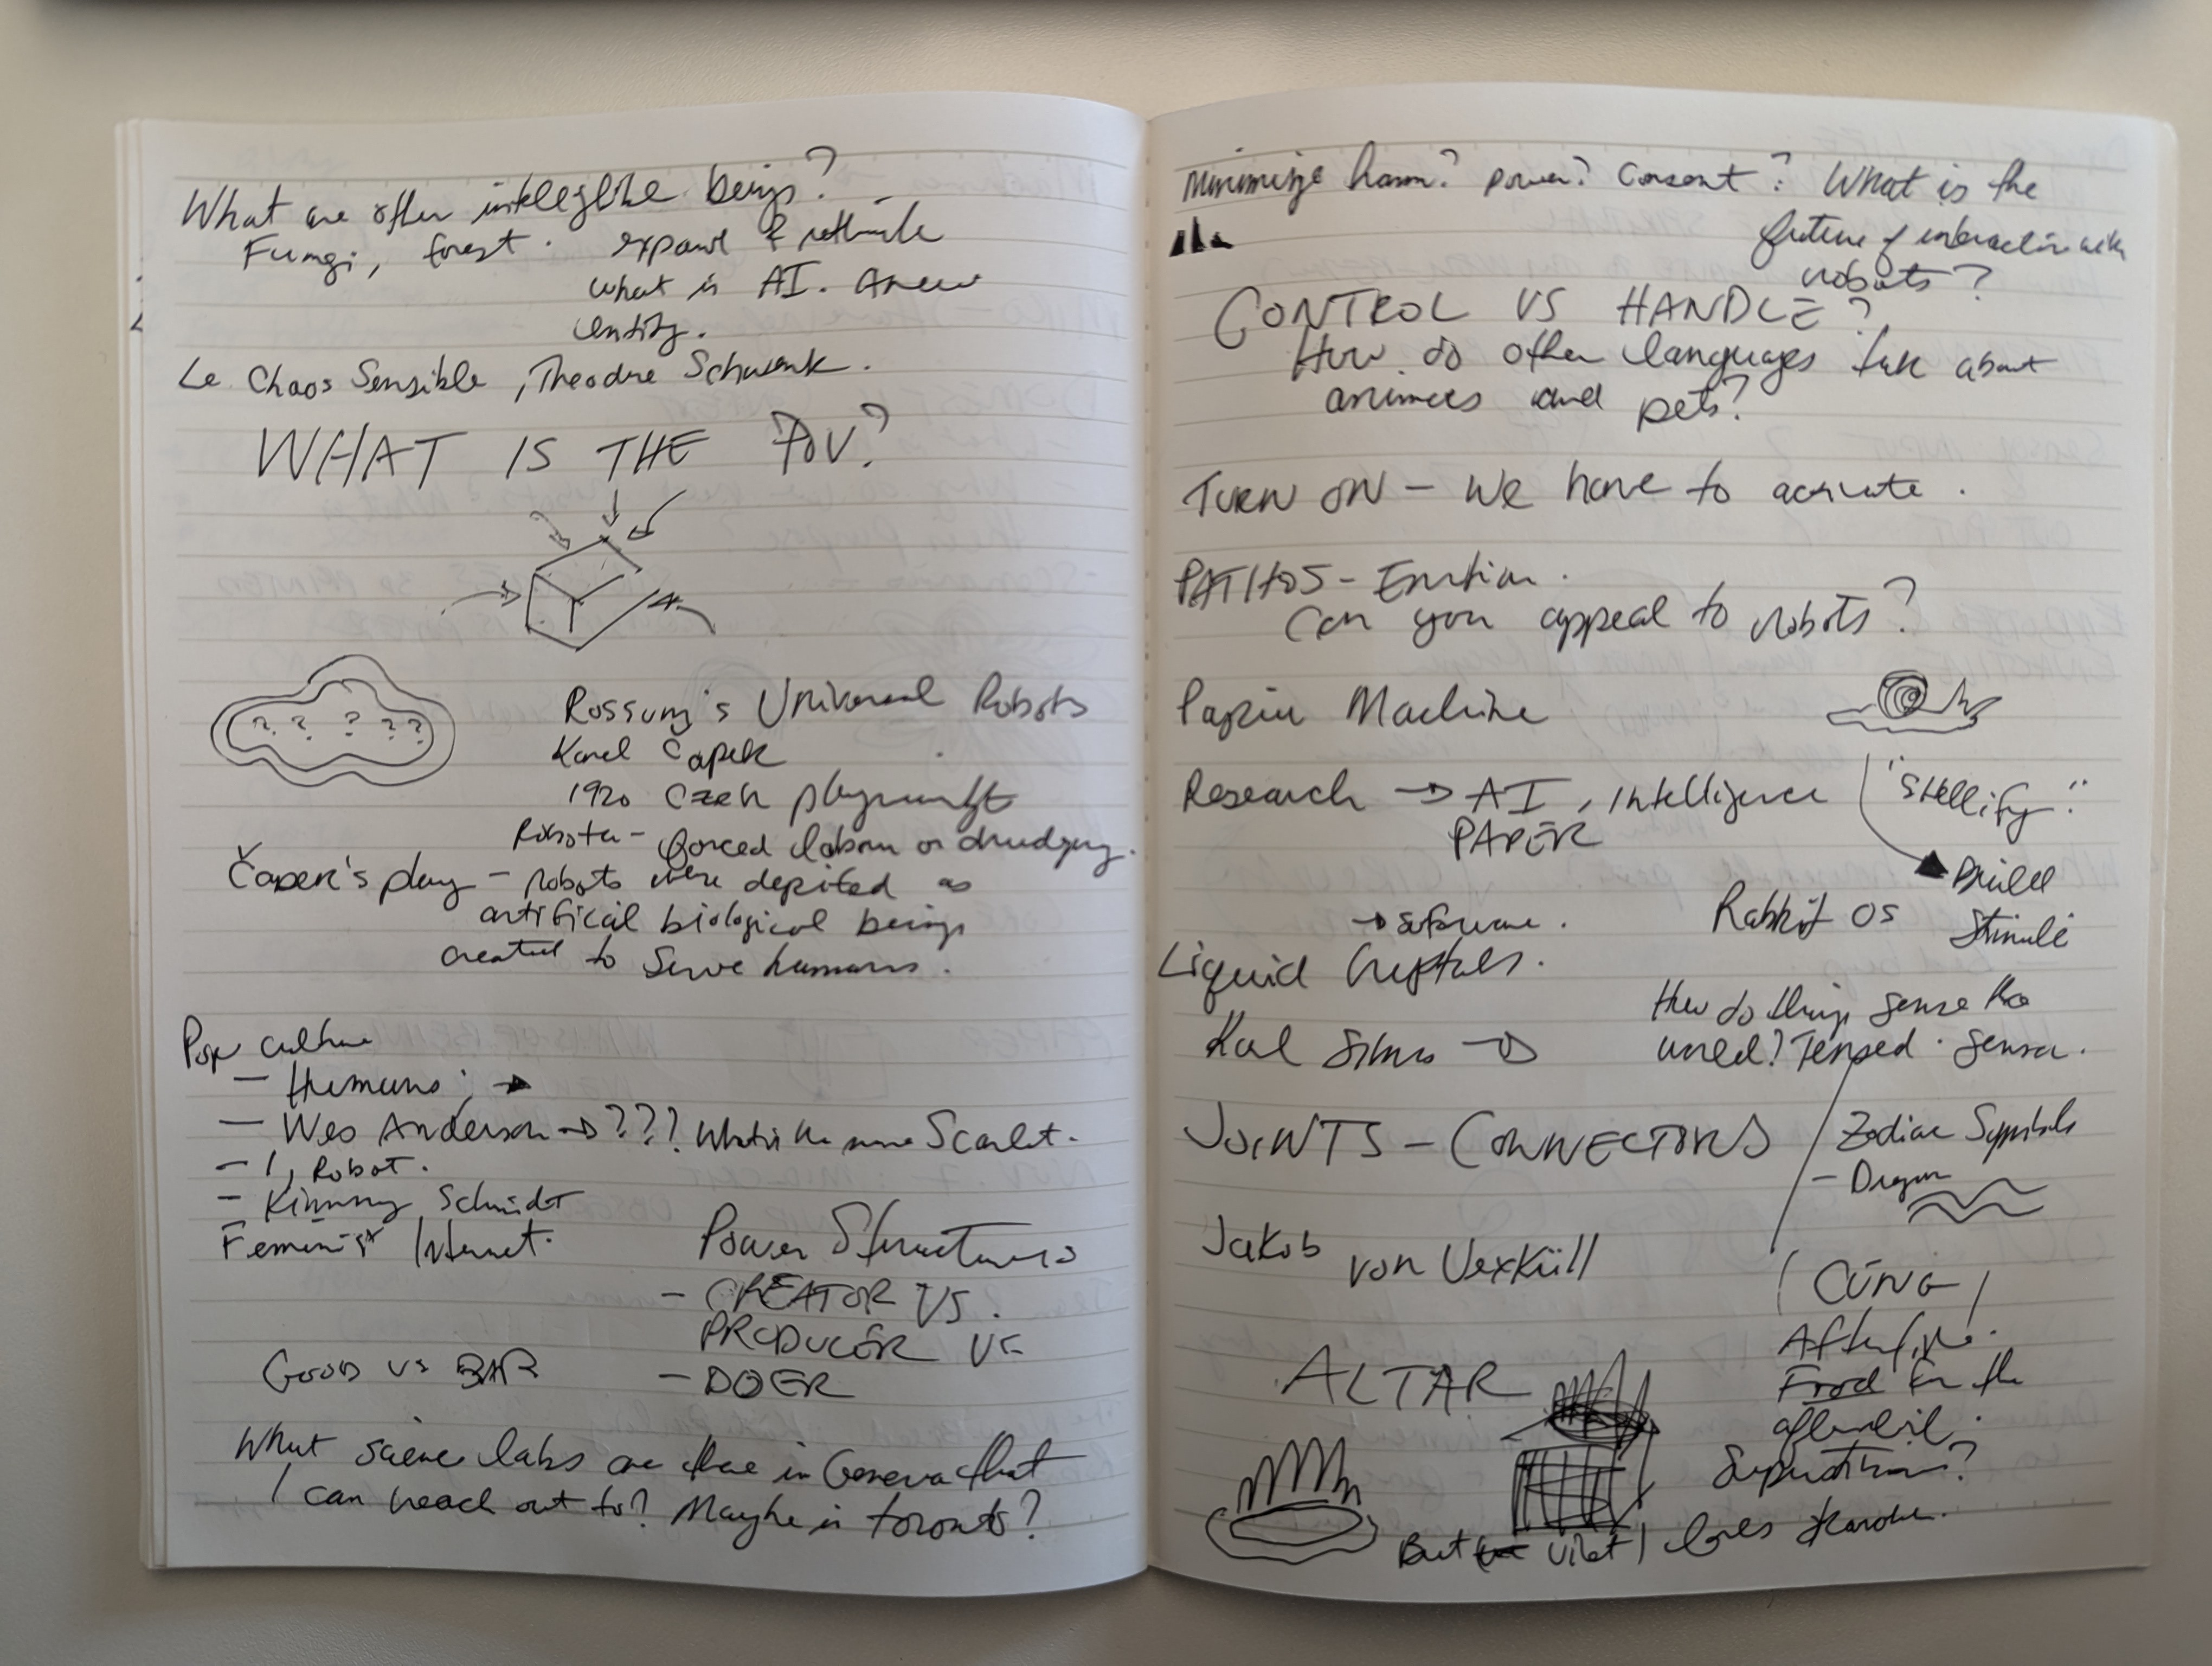 What are other inteleglble beings?
Fungi, forest. expand & rethink
what is AI. A new
entity.
Le Chaos Sensible, Theodre Schwenk.
WHAT IS THE POV?
? ? ? ? ?
Rossum's Universal Robots
Karel Capek
1920 Czech playwright
Robota - forced labour or drudgery.
Čapek's play - robots were depicted as
artificial biological beings
created to serve humans.
Pop culture
- Humans; →
- Wes Anderson → ??? What is the name Scarlet.
- I, Robot.
- Kimmy Schmidt
Feminist Internet.
Power Structures
- CREATOR VS.
PRODUCER VS
- DOER
Good vs BAD
What science labs are there in Geneva that
I can reach out to? Maybe in toronto?
Minimize harm? power? Consent? What is the
future of interaction with
robots?
CONTROL VS HANDLE?
How do other languages talk about
animals and pets?
TURN ON - We have to activate.
PATHOS - Emotion.
Can you appeal to robots?
Machine
Research → AI, Intelligence
PAPER
"Stellify"
Build
Stimuli
→ software.
Rabbit OS
Liquid Crystals.
How do things sense the
world? Tensed. Sensor.
Karl Sims →
JOINTS - CONNECTORS
Zodiac Symbols
- Dragon
Jakob von Uexküll
CÚNG
Afterlife.
Food for the
afterlife.
Superstitious?
ALTAR
But Viet loves Karaoke.